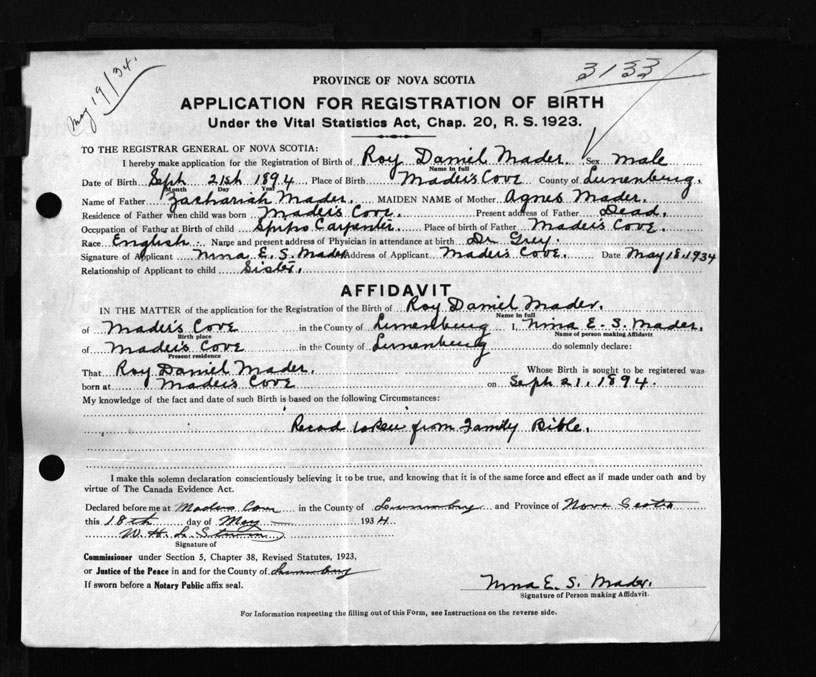 May 19/34.
3133
PROVINCE OF NOVA SCOTIA
APPLICATION FOR REGISTRATION OF BIRTH
Under the Vital Statistics Act, Chap. 20, R. S. 1923.
TO THE REGISTRAR GENERAL OF NOVA SCOTIA:
I hereby make application for the Registration of Birth of Roy Daniel Mader. Sex Male
Name in full
Date of Birth Sept 21st 1894 Place of Birth Mader's Cove County of Lunenburg.
Month Day Year
Name of Father Zachariah Mader. MAIDEN NAME of Mother Agnes Mader.
Residence of Father when child was born Mader's Cove. Present address of Father Dead.
Occupation of Father at Birth of child Carpenter. Place of birth of Father Mader's Cove.
Race English. Name and present address of Physician in attendance at birth Dr Grey.
Signature of Applicant Nina E. S. Mader Address of Applicant Mader's Cove. Date May 18, 1934
Relationship of Applicant to child Sister.
AFFIDAVIT
IN THE MATTER of the application for the Registration of the Birth of Roy Daniel Mader.
Name in full
of Mader's Cove in the County of Lunenburg I, Nina E. S. Mader,
Birth place Name of person making Affidavit
of Mader's Cove in the County of Lunenburg do solemnly declare:
Present residence
That Roy Daniel Mader. Whose Birth is sought to be registered was
born at Mader's Cove on Sept 21, 1894.
My knowledge of the fact and date of such Birth is based on the following Circumstances:
Record taken from Family Bible.
I make this solemn declaration conscientiously believing it to be true, and knowing that it is of the same force and effect as if made under oath and by
virtue of The Canada Evidence Act.
Declared before me at Maders Cove in the County of Lunenburg and Province of Nova Scotia
this 18th day of May 1934
W. H. L.
Signature of
Commissioner under Section 5, Chapter 38, Revised Statutes, 1923,
or Justice of the Peace in and for the County of Lunenburg
If sworn before a Notary Public affix seal.
Nina E. S. Mader.
Signature of Person making Affidavit.
For Information respecting the filling out of this Form, see Instructions on the reverse side.